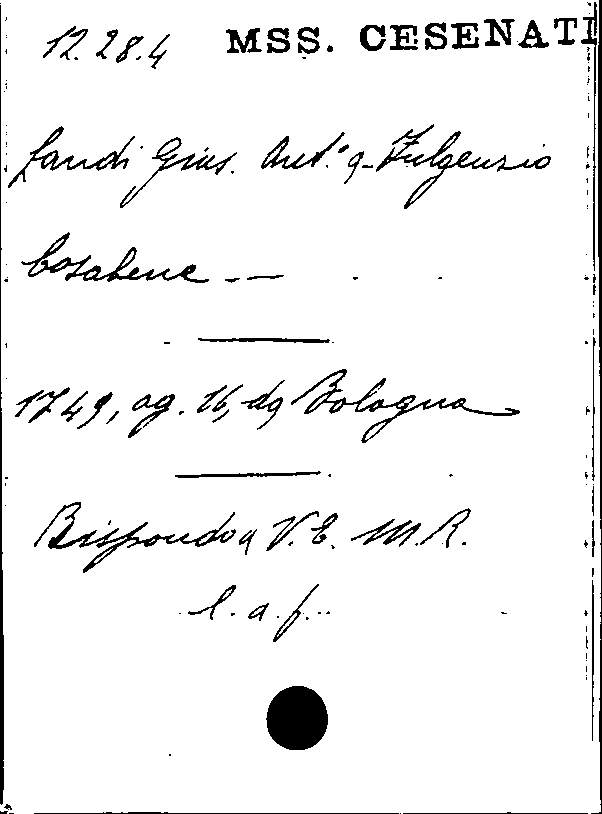 12.28.4 MSS. CESENATI
Landi Gius. Ant.° a Fulgenzio
Bosabene —
1749, ag. 16, da Bologna
Rispondo a V. E. M. R.
l. a. f.